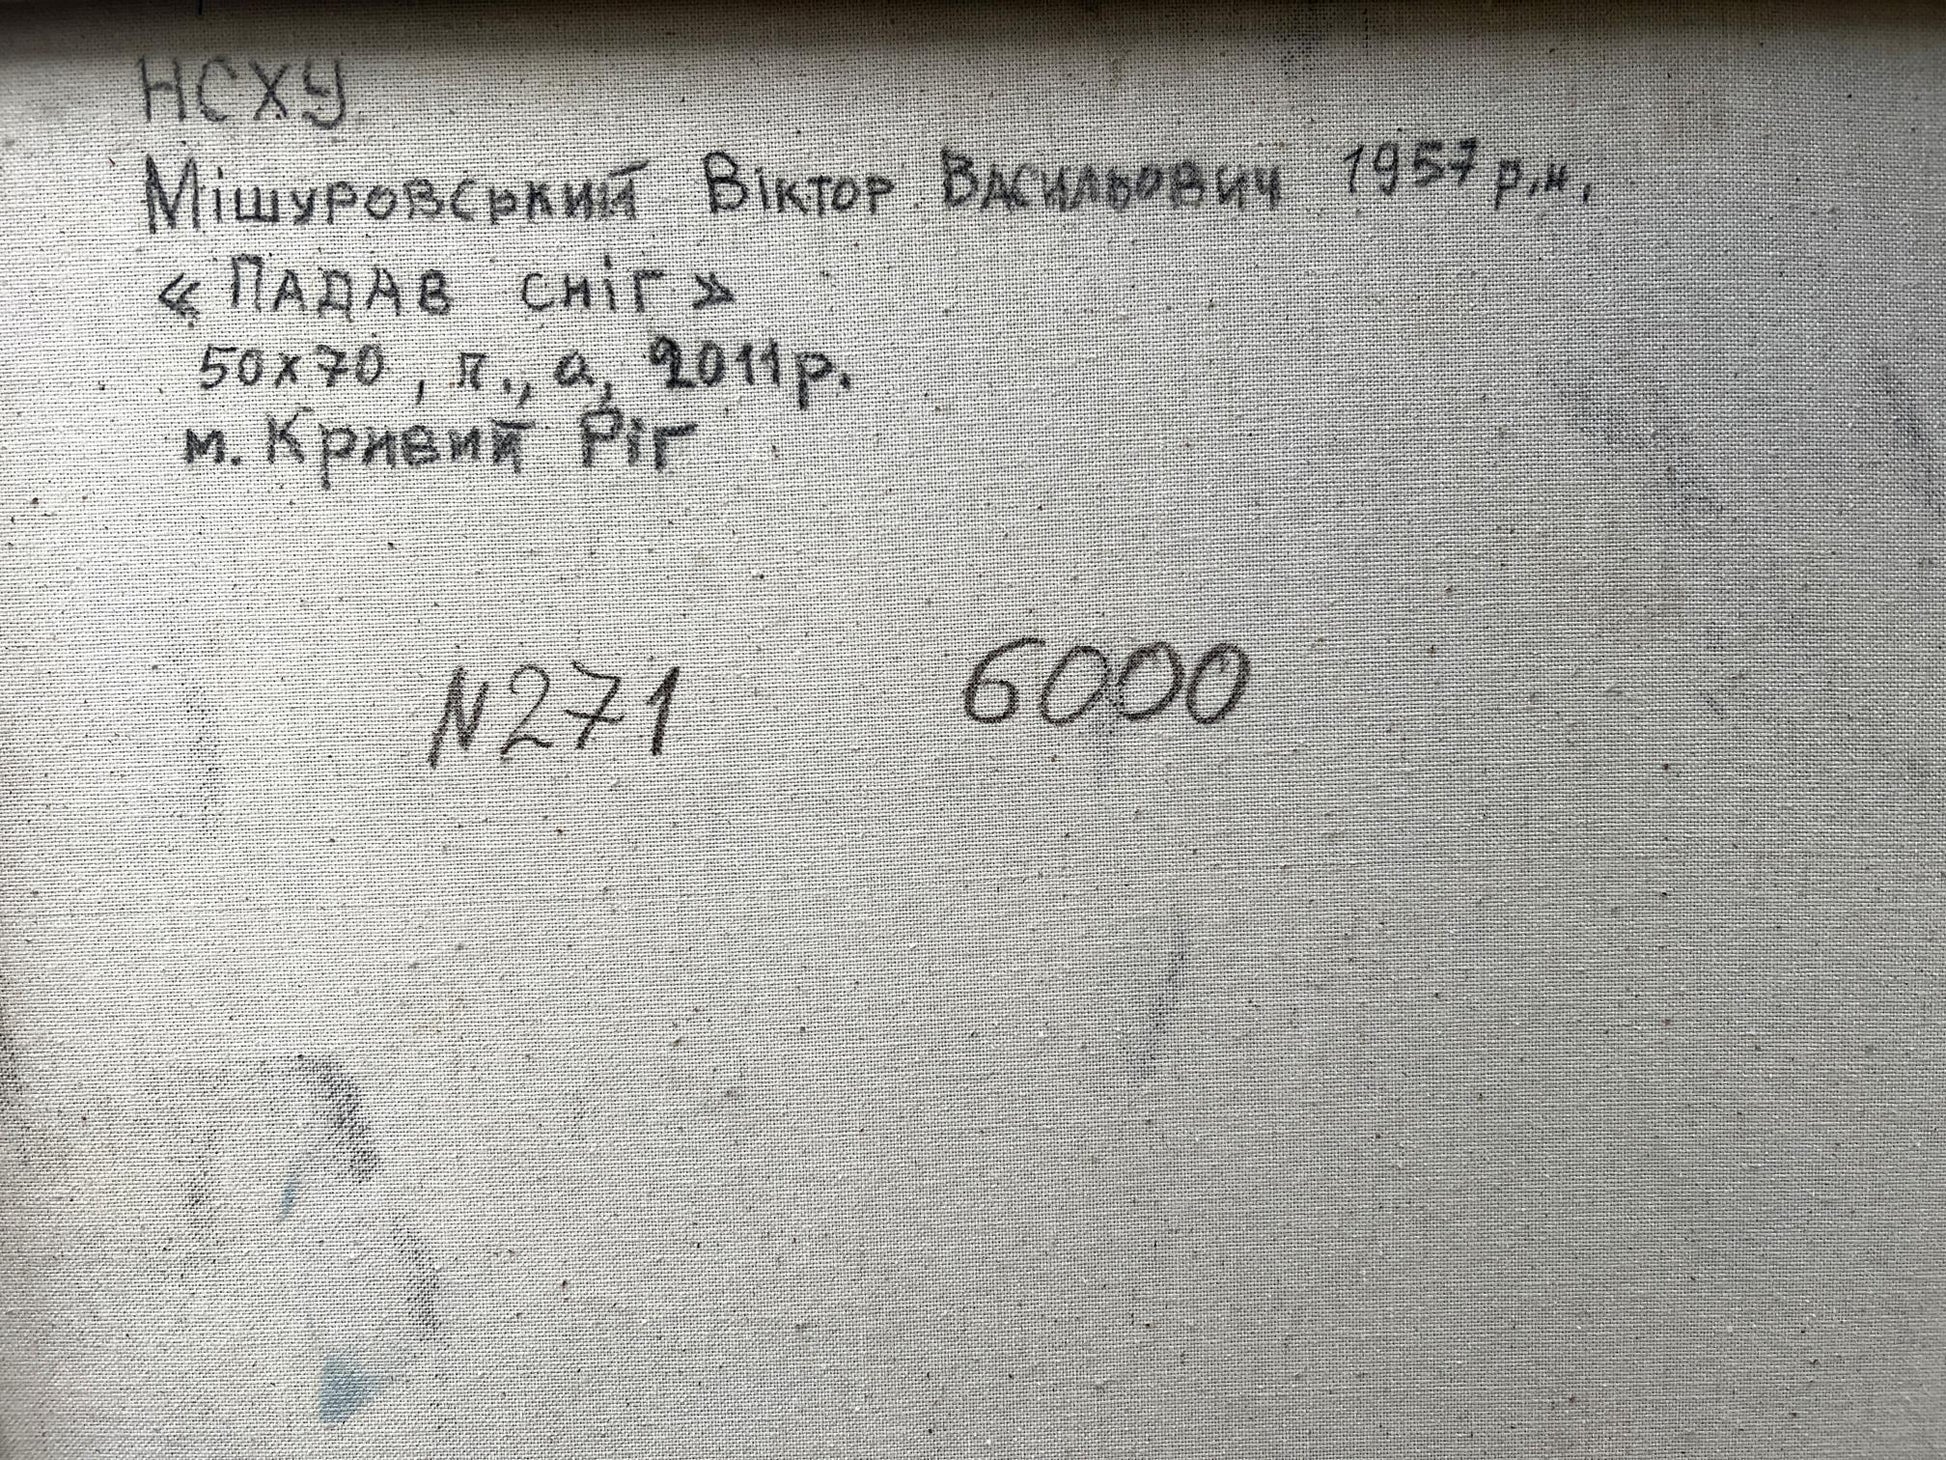 НСХУ
Мішуровський Віктор Васильович 1957 р.н.
«Падав сніг»
50х70, п., а, 2011р.
м. Кривий Ріг
N271 6000